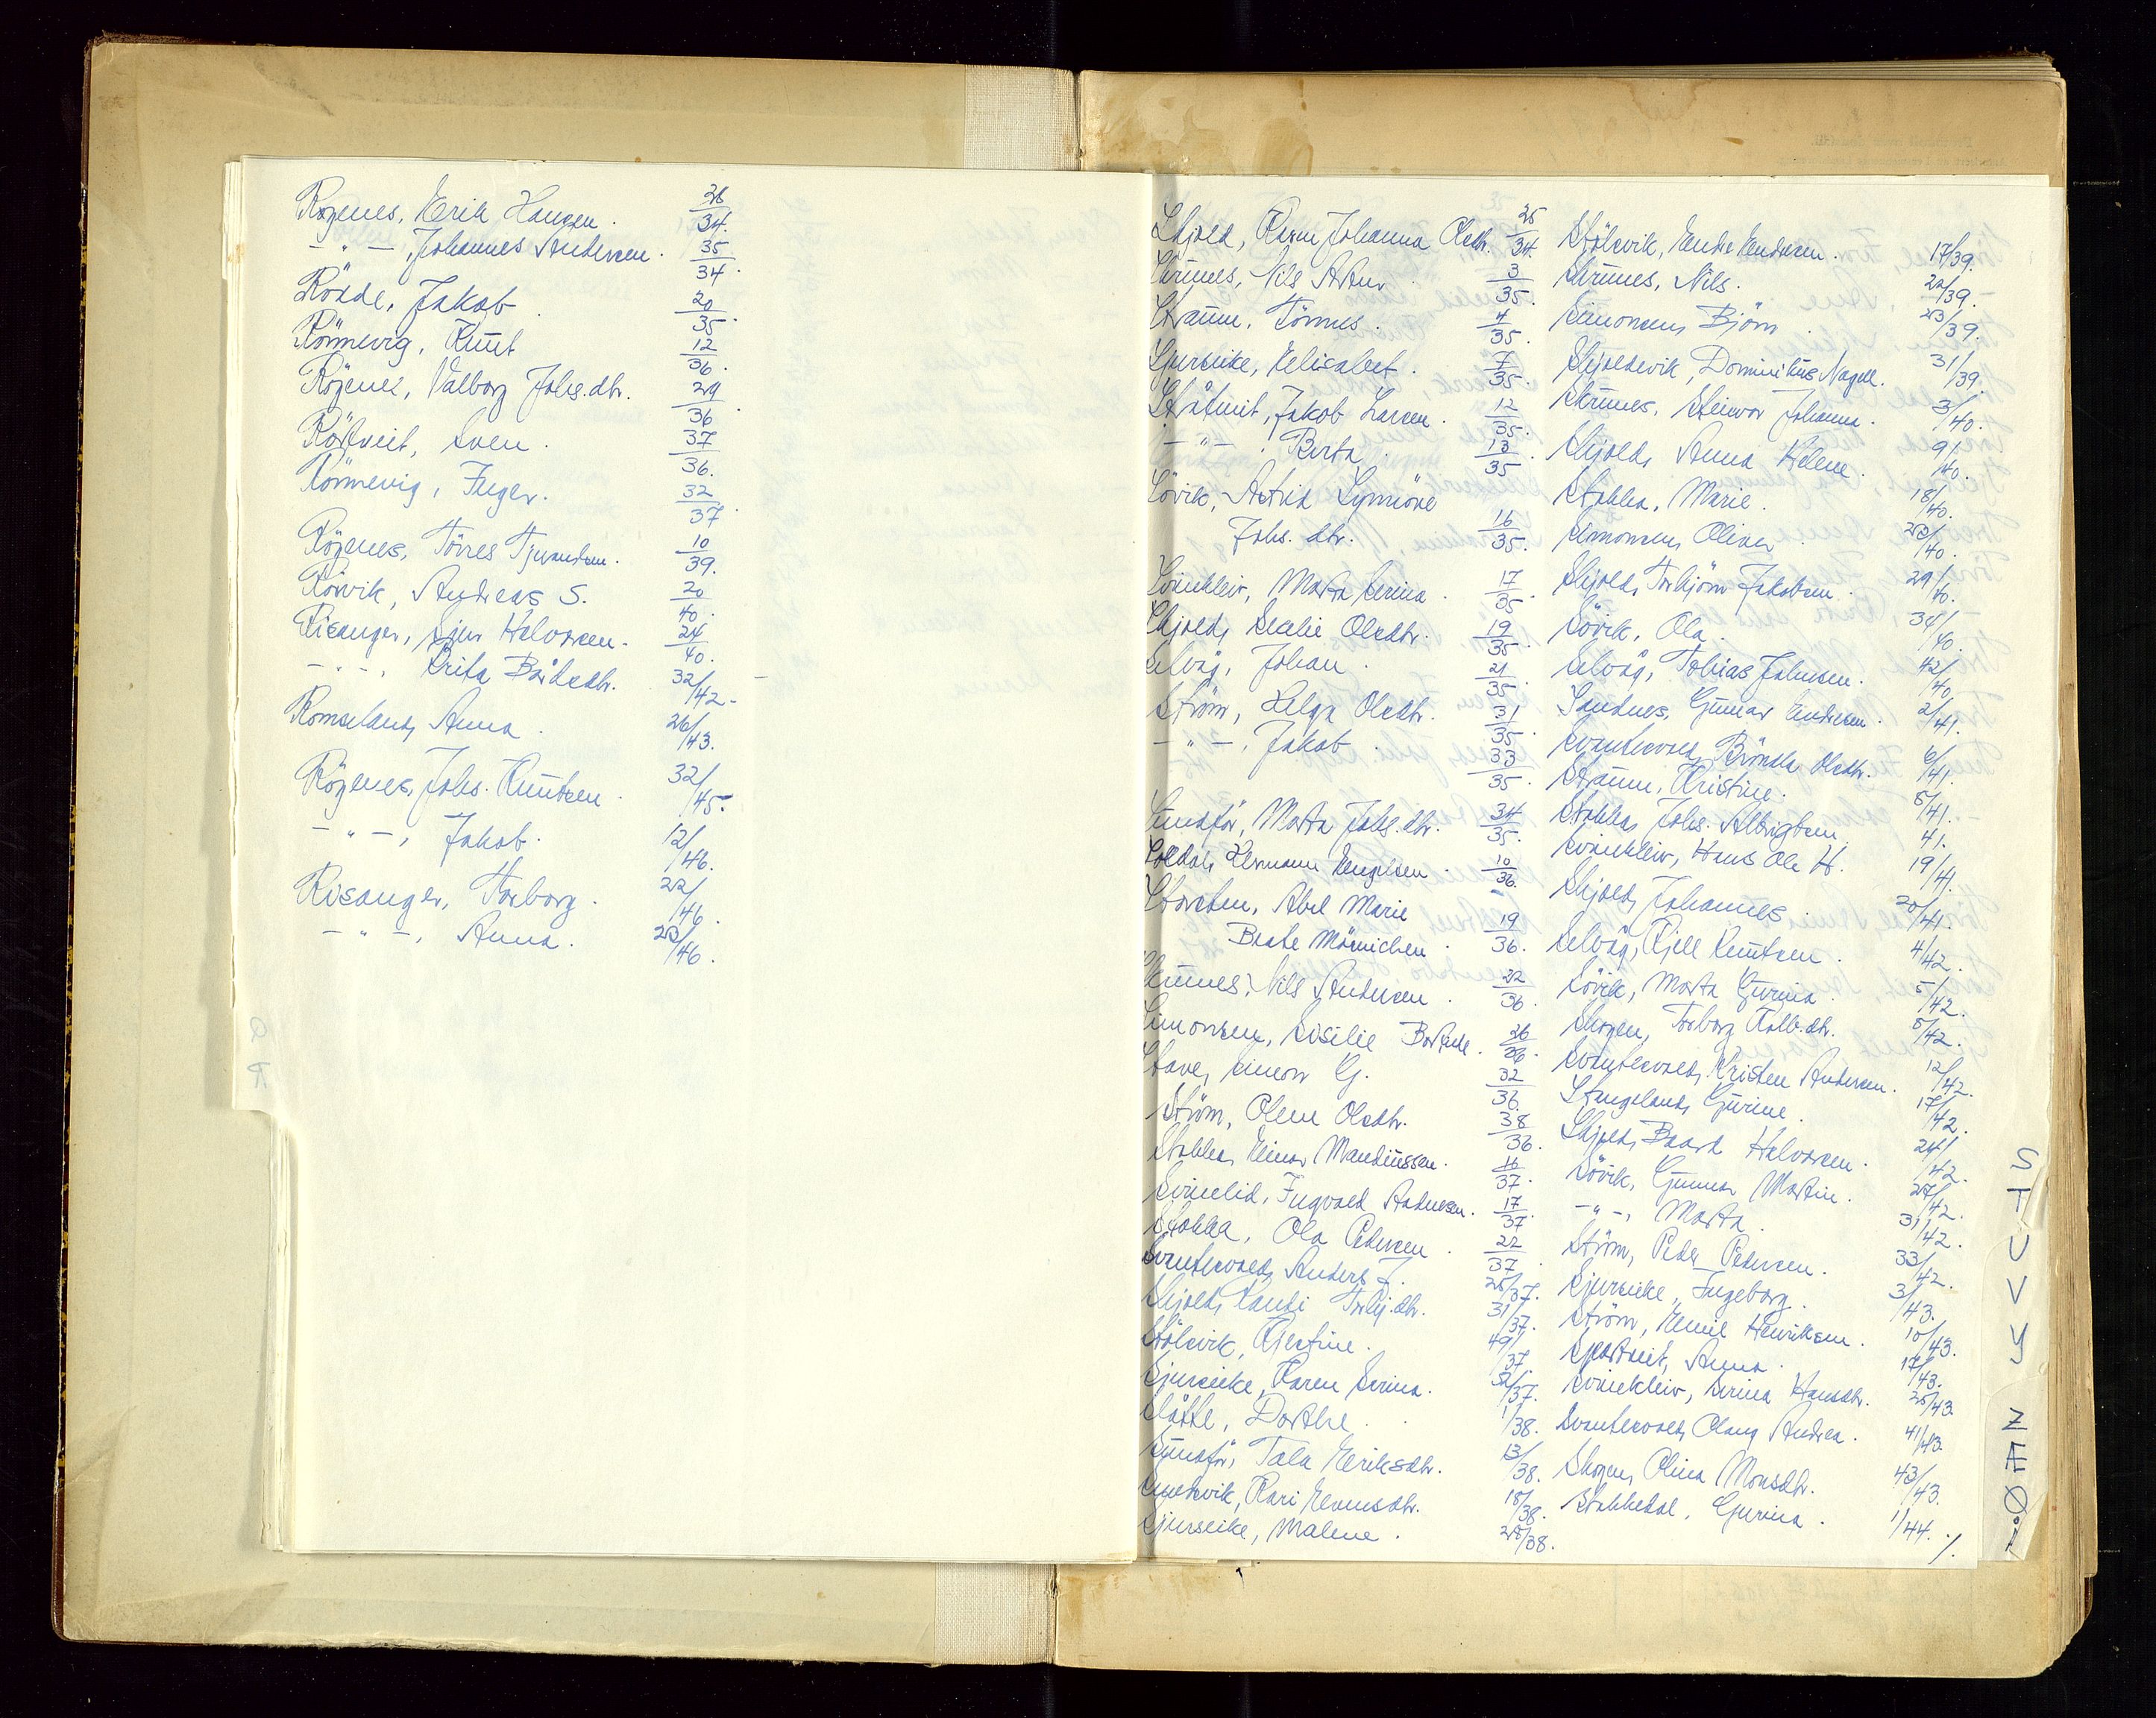 Røgenes, Erik Hansen. 28/34.
- " -, Johannes Andersen. 35/34.
Rönde, Jakob. 20/35.
Rönnevig, Knut 12/36.
Rögenes, Valborg Johs.dtr. 29/36.
Röstveit, Sven. 37/36.
Rönnevig, Inger. 32/37.
Rögenes, Törres Tjerandsen. 10/39.
Rörvik, Andreas S. 20/40.
Risanger, Sjur Halvorsen. 24/40.
- " -, Brita Bårdsdtr. 32/42.
Romseland, Anna. 26/43.
Rögenes, Johs. Knutsen. 32/45.
- " -, Jakob. 12/46.
Risanger, Torborg. 22/46.
- " -, Anna. 23/46.

Skjold, Karen Johanna Olsdtr. 25/34.
Skrunes, Nils 3/35.
Straum, Tönnes. 4/35.
Sjurseike, Elisabet. 7/35.
Jakob Larsen. 12/35.
- " -, Berta. 13/35
Sövik, Astrid Synnöve
Johs. dtr. 16/35.
Svinkleiv, Marta Serina. 17/35.
Skjold, Secelie Olsdtr. 19/35.
Selvåg, Johan. 21/35.
Ström, Helga Olsdtr. 31/35.
- " -, Jakob. 33/35.
Sundför, Marta Johs.dtr. 34/35.
Hermann Engelsen. 10/36.
Abel Marie
Beate 19/36.
Skrunes, Nils Andersen. 22/36.
Simonsen, Sisilie Bertine. 26/36.
Stave, Simon G. 32/36.
Ström, Olene Olsdtr. 38/36.
Stakka, Einar Mandiussen. 16/37.
Svinelid, Ingvald Andersen. 17/37.
Stakka, Ola Pedersen. 22/37.
Svantesvold, Anders J. 25/37.
Skjold, Randi Torbj.dtr. 31/37.
Stölsvik, Kjestine. 49/37.
Sjurseike, Karen Serina. 52/37.
Slåtte, Dorthe. 1/38.
Sundför, Tala Eriksdtr. 13/38.
Kari 18/38.
Sjurseike, Malene. 25/38.

Stölsvik, Endre Endresen. 17/39.
Skrunes, Nils. 22/39.
Simonsen, Björn. 23/39.
Skjoldevik, Dominikus Nagell. 31/39.
Skrunes, Steinvor Johanna. 3/40.
Skjold, Anna Helene. 9/40.
Stakka, Marie. 18/40.
Simonsen, Oliver. 23/40.
Skjold, Torbjörn Jakobsen. 29/40.
Sövik, Ola. 34/40.
Selvåg, Tobias Johnsen. 42/40.
Sandnes, Gunnar Endresen. 2/41.
Svantesvold, Brönla Olsdtr. 6/41.
Straum, Kristine. 8/41.
Stakka, Johs. Albrigtsen. 41.
Svinkleiv, Hans Ole H. 19/41.
Skjold, Johannes. 20/41.
Selvåg, Kjell Knutsen. 4/42.
Sövik, Marta Gurina. 5/42.
Skogen, Torborg 8/42.
Svantesvold, Kristen Andersen. 12/42.
Stangeland, Gurine. 17/42.
Skjold, Baard Halvorsen. 24/42.
Sövik, Gunnar Martin. 27/42.
- " -, Marta. 31/42.
Ström, Peder Pedersen. 33/42.
Sjurseike, Ingeborg. 3/43.
Ström, Emil Henriksen. 10/43.
Anna. 17/43.
Svinkleiv, Serina Hansdtr. 25/43.
Svantesvold, Olaug Andrea. 41/43.
Skogen, Olina Monsdtr. 43/43.
Stakkedal, Gurina. 1/44.
./.

S
T
U
V
Y
Z
Æ
Ø
Å